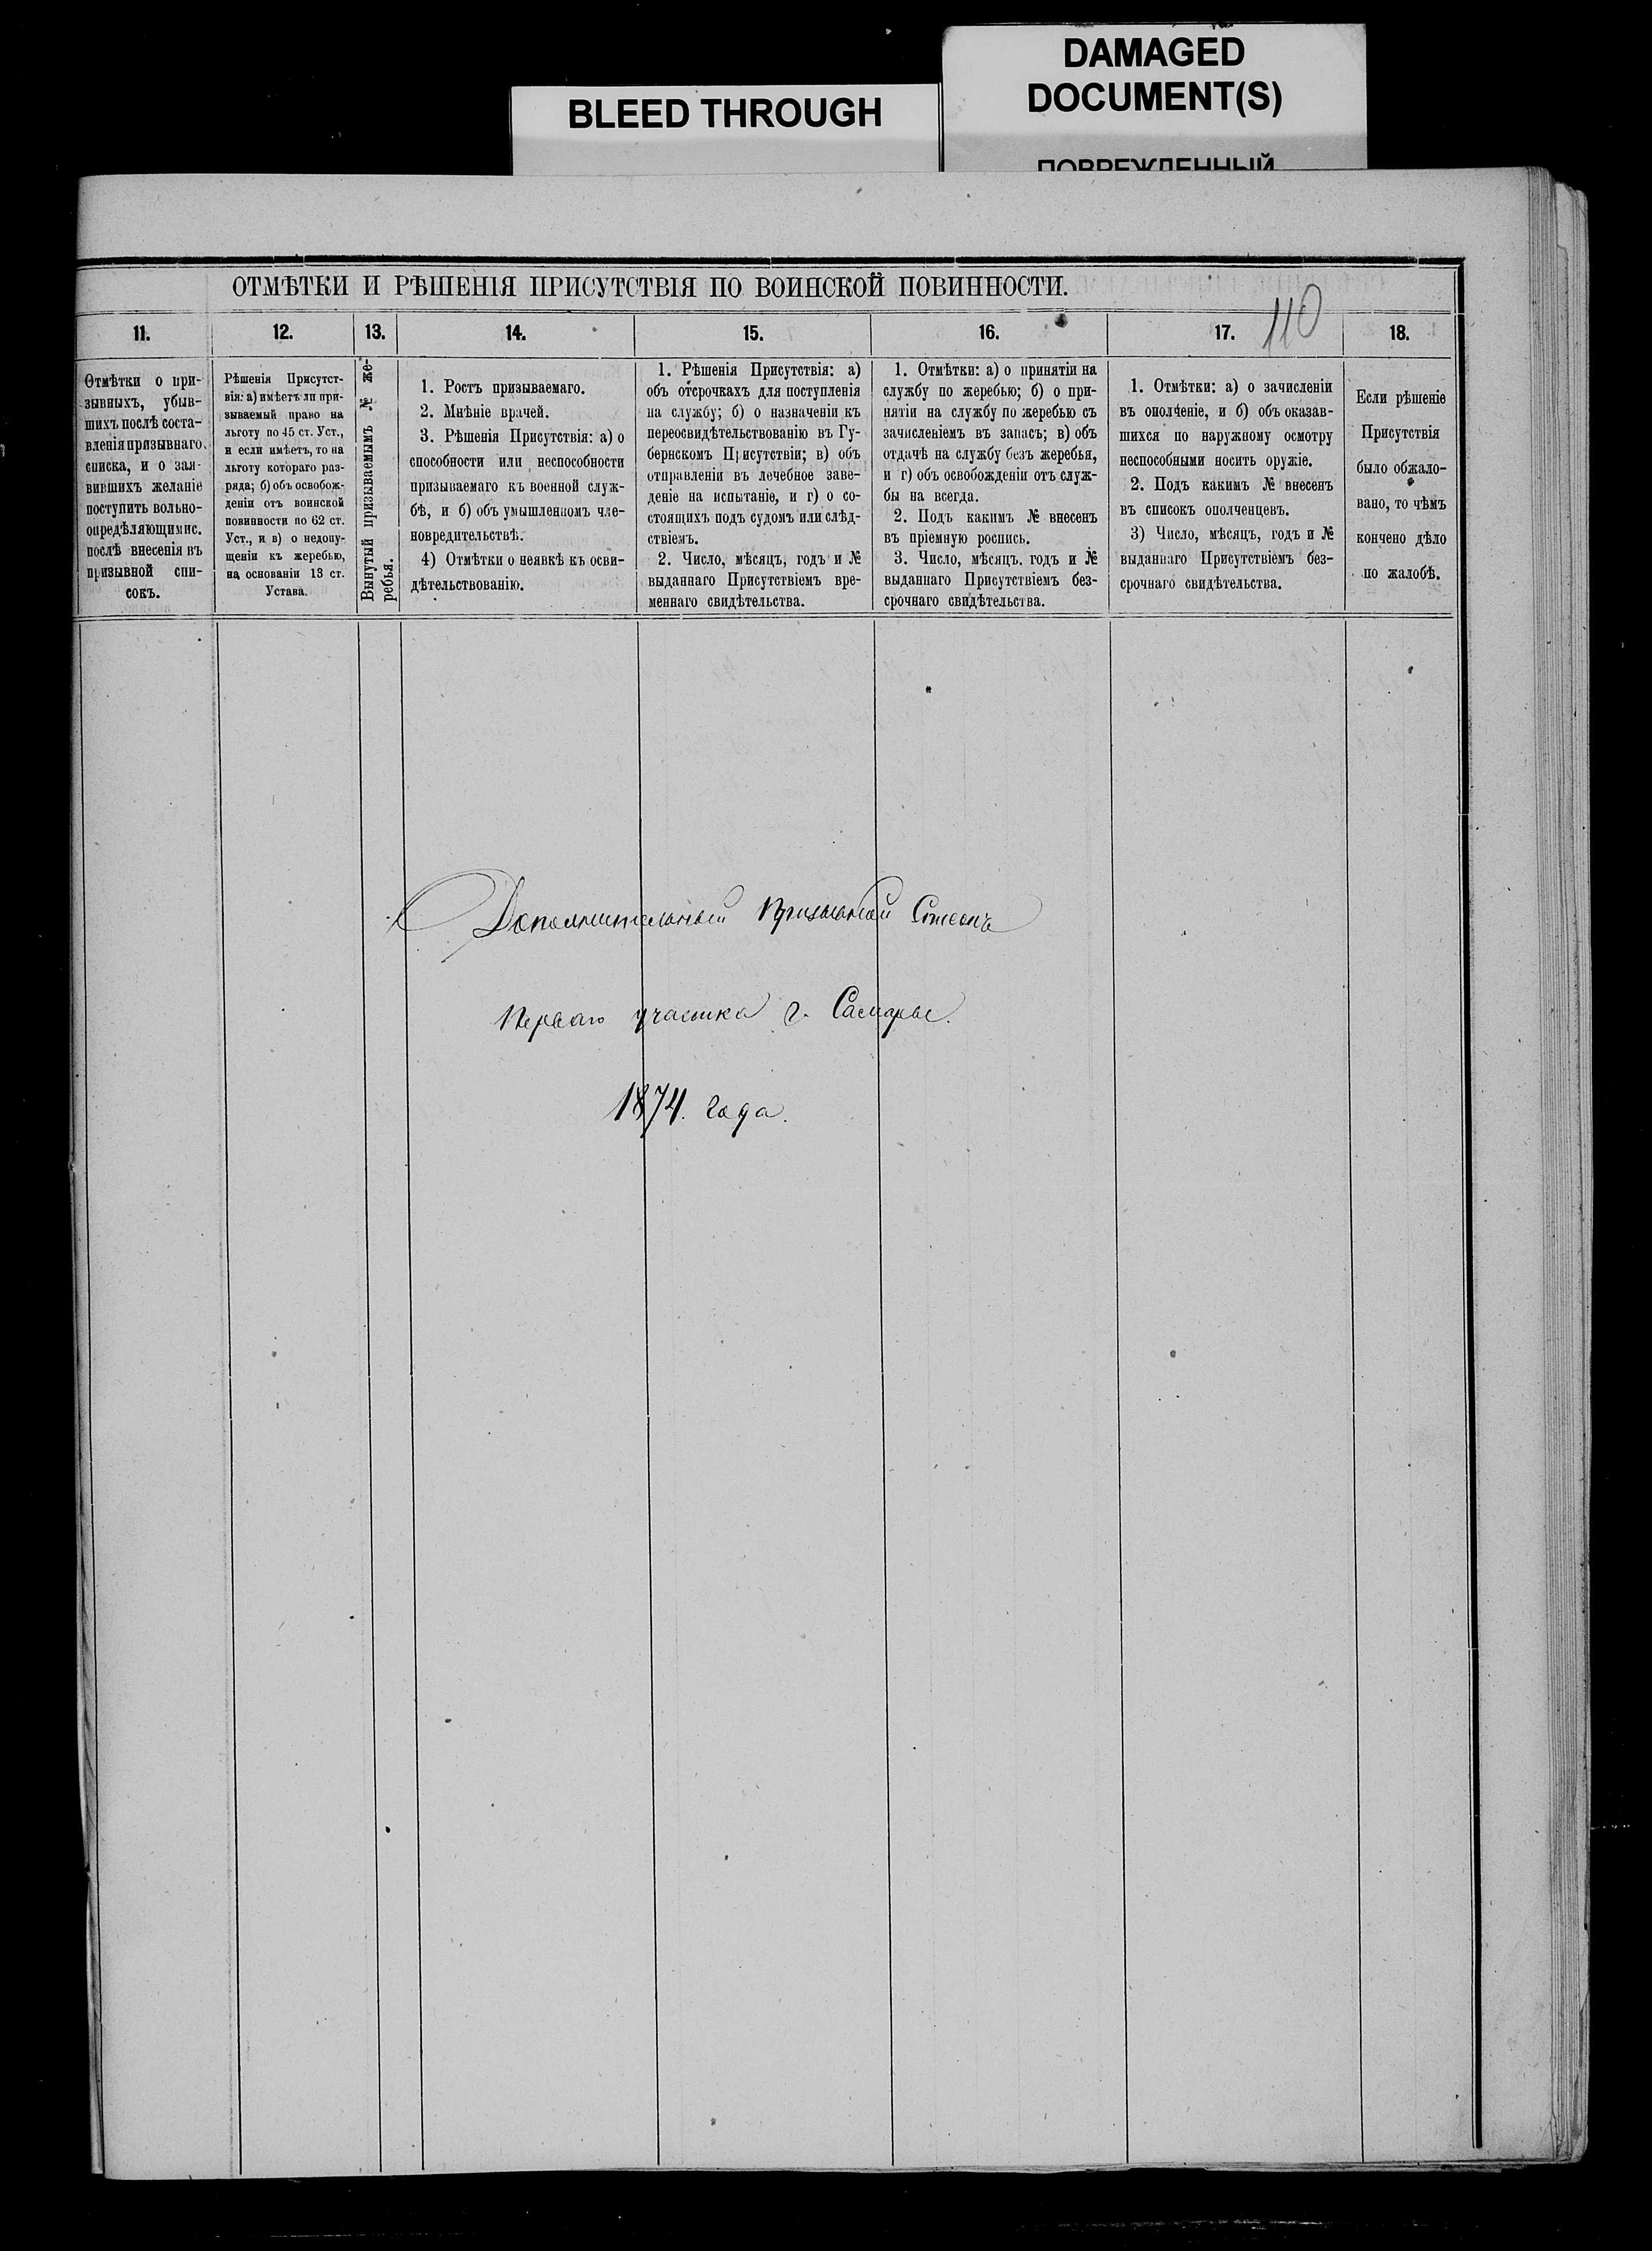 BLEED THROUGH
DAMAGED
DOCUMENT(S)
ПОВРЕЖДЕННЫЙ
ОТМѢТКИ И РѢШЕНІЯ ПРИСУТСТВІЯ ПО ВОИНСКОЙ ПОВИННОСТИ.
110
11.
Отмѣтки о при-
зывныхъ, убыв-
шихъ послѣ соста-
вленія призывнаго
списка, и о зая-
вившихъ желаніе
поступить вольно-
опредѣляющимис.
послѣ внесенія въ
призывной спи-
сокъ.
12.
Рѣшенія Присутст-
вія: а) имѣетъ ли при-
зываемый право на
льготу по 45 ст. Уст.,
и если имѣетъ, то на
льготу котораго раз-
ряда; б) объ освобож-
деніи отъ воинской
повинности по 62 ст.
Уст., и в) о недопу-
щеніи къ жеребью,
на основаніи 13 ст.
Устава.
13.
Вынутый призываемымъ № же-
ребья.
14.
1. Ростъ призываемаго.
2. Мнѣніе врачей.
3. Рѣшенія Присутствія: а) о
способности или неспособности
призываемаго къ военной служ-
бѣ, и б) объ умышленномъ чле-
новредительствѣ.
4) Отмѣтки о неявкѣ къ осви-
дѣтельствованію.
15.
1. Рѣшенія Присутствія: а)
объ отсрочкахъ для поступленія
на службу; б) о назначеніи къ
переосвидѣтельствованію въ Гу-
бернскомъ Присутствіи; в) объ
отправленіи въ лечебное заве-
деніе на испытаніе, и г) о со-
стоящихъ подъ судомъ или слѣд-
ствіемъ.
2. Число, мѣсяцъ, годъ и №
выданнаго Присутствіемъ вре-
меннаго свидѣтельства.
16.
1. Отмѣтки: а) о принятіи на
службу по жеребью; б) о при-
нятіи на службу по жеребью съ
зачисленіемъ въ запасъ; в) объ
отдачѣ на службу безъ жеребья,
и г) объ освобожденіи отъ служ-
бы на всегда.
2. Подъ какимъ № внесенъ
въ пріемную роспись.
3. Число, мѣсяцъ. годъ и №
выданнаго Присутствіемъ без-
срочнаго свидѣтельства.
17.
1. Отмѣтки: а) о зачисленіи
въ ополченіе, и б) объ оказав-
шихся по наружному осмотру
неспособными носить оружіе.
2. Подъ какимъ № внесенъ
въ списокъ ополченцевъ.
3) Число, мѣсяцъ, годъ и №
выданнаго Присутствіемъ без-
срочнаго свидѣтельства.
18.
Если рѣшеніе
Присутствія
было обжало-
вано, то чѣмъ
кончено дѣло
по жалобѣ.
Дополнительный Призывной Списокъ
Перваго участка г. Самары.
1874. года.